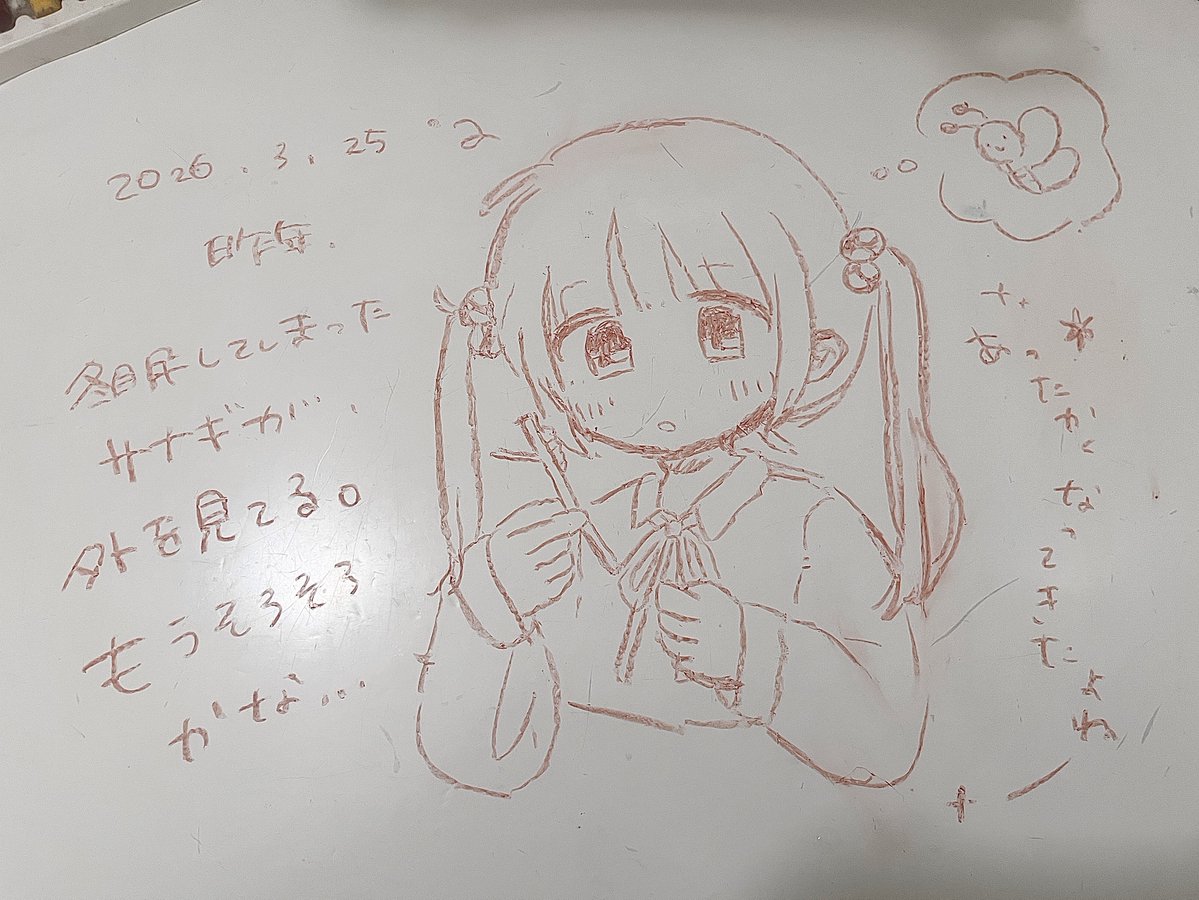 2026.3.25
昨年、
冬眠してしまった
サナギが、
外を見てる。
もうそろそろ
かな…
あったかくなってきたよね